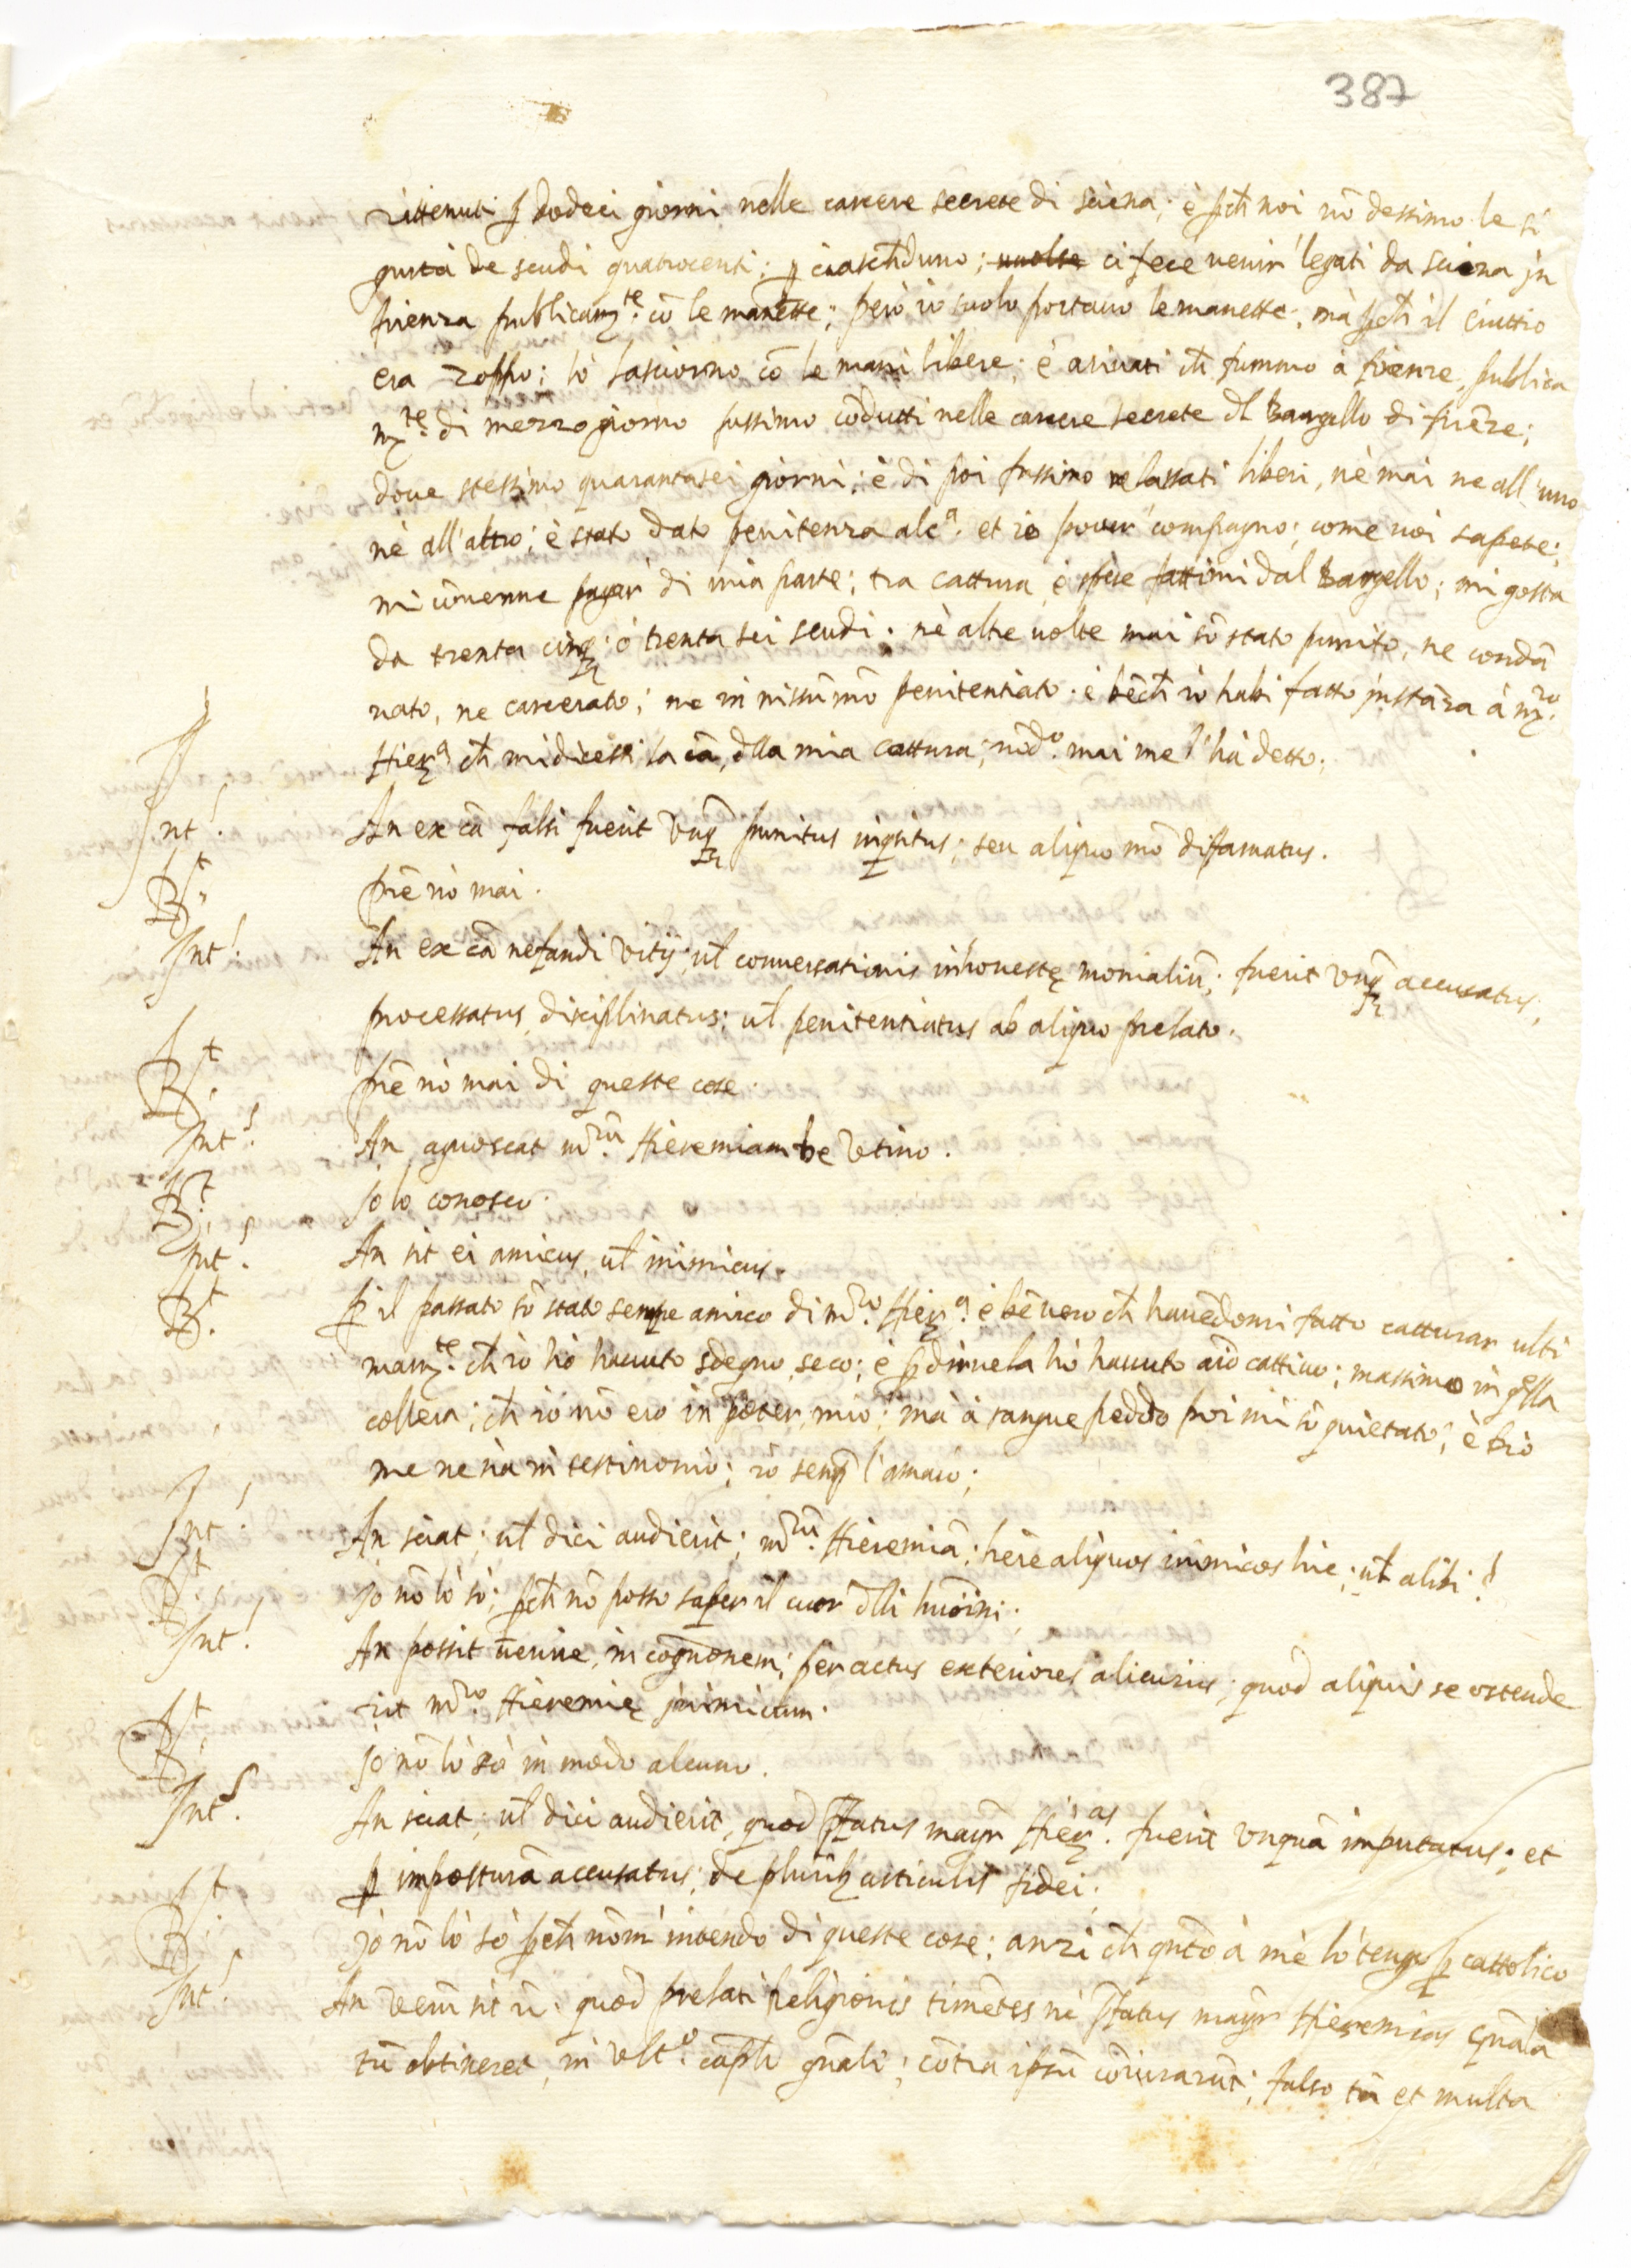 387
rittenuti p dodeci giorni nelle carcere secrete di sciena; è pch noi nō dessimo le si
gurtà de scudi quatrocenti; p ciaschduno; uuolse ci fece uenir' legati da sciena in
firenza publicamte. cō le manette; però io suolo portauo le manette, mà pch il ciuttio
era zoppo; lò lasciorno cō le mani libere; è ariuati ch fummo à firenze, publica
mte. di mezzo giorno fussimo cōdutti nelle carcere secrete dl Bargello di firēze;
doue stessimo quarantasei giorni; è di poi fussimo relassati liberi, nè mai ne all'uno
nè all'altro; è stato dato penitenza alca. et io pouer' compagno; come uoi sapete;
mi cōuenne pagar' di mia parte; tra cattura, è spese fattimi dal Bargello; mi gosta
da trenta cinq; ò trenta sei scudi. nè altre uolte mai sō stato punito, ne condā
nato, ne carcerato; ne in nissūmō penitentiato. è bēch iò habi fatto instāza à mro.
Hiera ch mi dicessi la cā, dlla mia cattura; nōdo. mai me l'hà detto.
Int. An ex cā falsi fuerit vnq punitus inqsitus; seu aliquo mō difamatus.
Rt. prē nò mai.
Int. An ex cā nefandi vitij; ul conuersationis inhonestę monialiū; fuerit vnq accusatus,
processatus, disciplinatus; ul penitentiatus ab aliquo prelato.
Rt. prē nò mai di queste cose.
Int. An agnoscat mrū. Hieremiam de Vtino.
Rt. Io lo conosco.
Int. An sit ei amicus, ul inimicus.
Rt. p il passato sō stato sempe amico di mro. Hiera. è bē uero ch hauēdomi fatto catturar ulti
mamte. ch iò hò hauuto sdegno seco; è p diruela hò hauuto aiō cattiuo; massimo in qlla
collera; ch iò nō ero in poter mio; mà à sangue freddo poi mi sō quietato; è Dio
me ne sia in testimonio; io semp l'amaio;
Int. An sciat; ul dici audierit; mrū. Hieremiā; hēre aliquos inimicos hic; ul alibi?
Rt. Io nō lò sò; pch nō posso saper il cuor dlli huōini;
Int. An possit uenire, in cognōnem; per actus exteriores alicuius; quod aliquis se ostende
rit mro. Hieremię inimicum.
Rt. Io nō lò sò in modo alcuno.
Int. An sciat; ul dici audierit, quod pfatus magr Hieras. fuerit vnquā imputatus; et
p imposturā accusatus; de plurib articulis fidei.
Rt. Iò nō lò sò pch nō m' intendo di queste cose; anzi ch qntō à mè lò tengo p cattolico
Int. An verū sit ū. quod prelati religionis timētes nè pfatus magr Hieremias gnala
tū obtineret, in vlto. caplo gnali; cōtra ipsū cōiurarūt; falso tā et multa